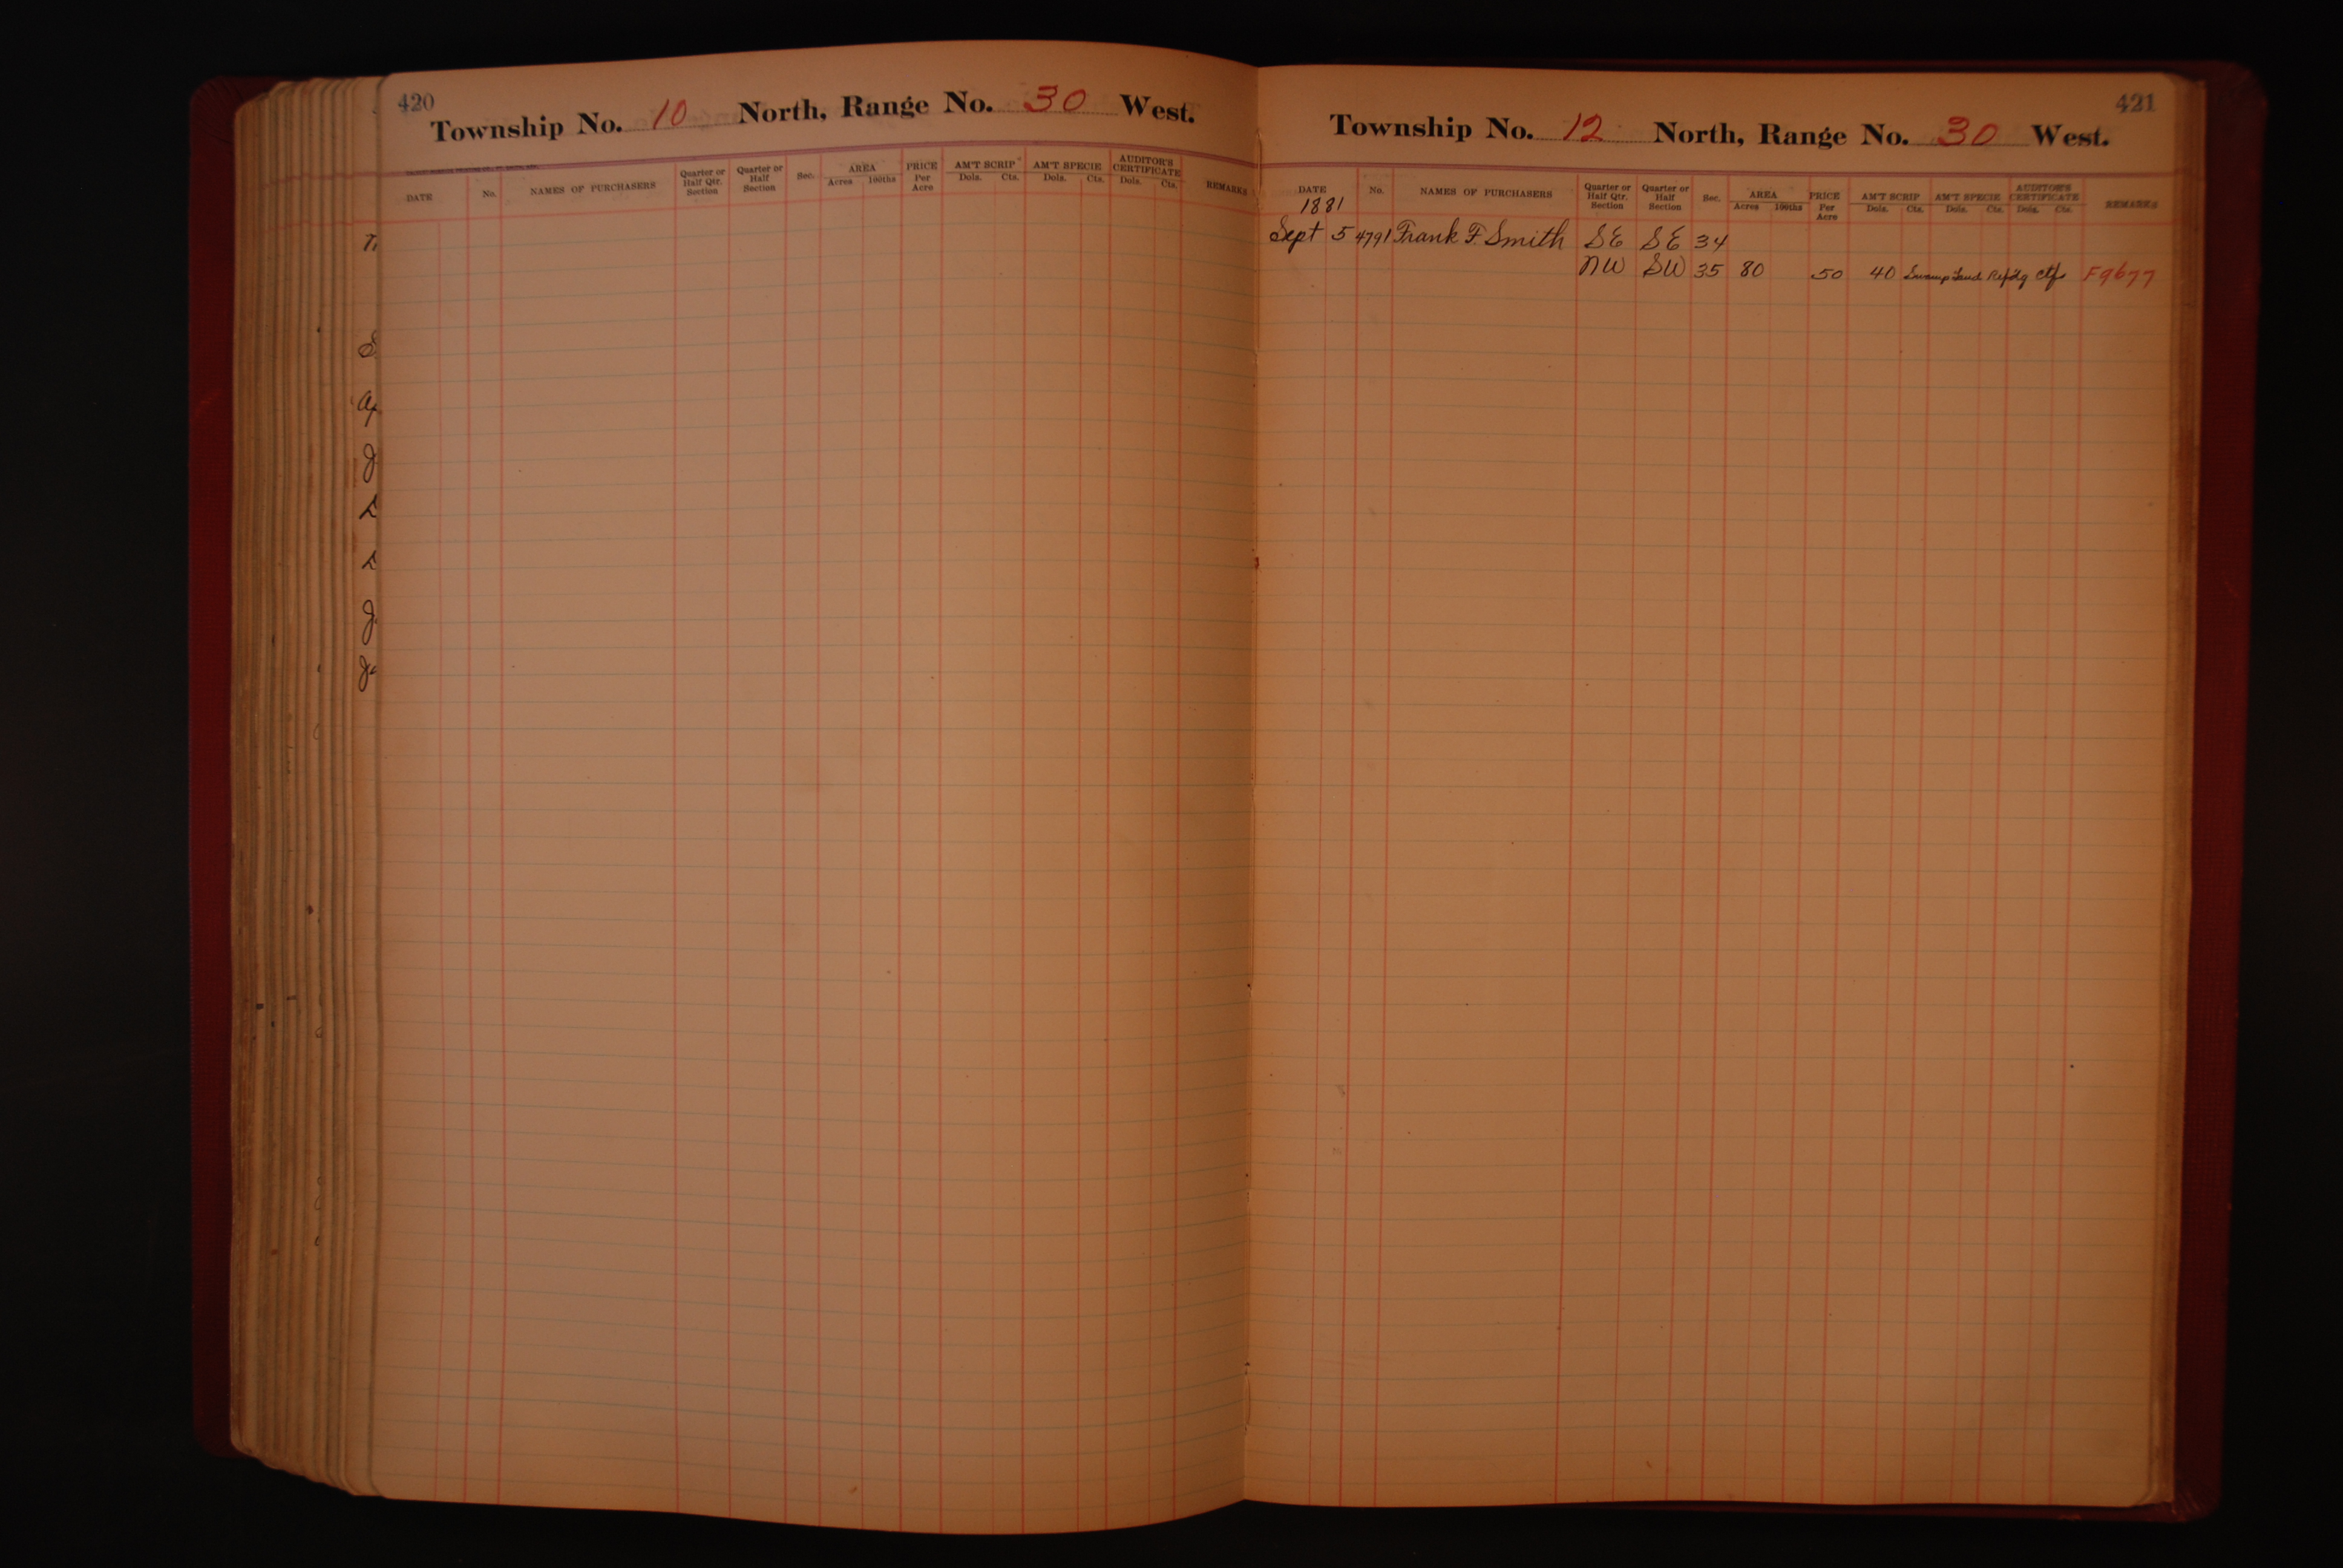 420
Township No. 10 North, Range No. 30 West.
DATE No. NAMES OF PURCHASERS Quarter or Half Qtr. Section Quarter or Half Section Sec. AREA Acres 100ths PRICE Per Acre AM'T SCRIP Dols. Cts. AM'T SPECIE Dols. Cts. AUDITOR'S CERTIFICATE Dols. Cts. REMARKS
421
Township No. 12 North, Range No. 30 West.
DATE No. NAMES OF PURCHASERS Quarter or Half Qtr. Section Quarter or Half Section Sec. AREA Acres 100ths PRICE Per Acre AM'T SCRIP Dols. Cts. AM'T SPECIE Dols. Cts. AUDITOR'S CERTIFICATE Dols. Cts. REMARKS
1881
Sept 5 4791 Frank F. Smith SE SE 34
NW SW 35 80 50 40 Swamp Land Refdg Ctf F9677